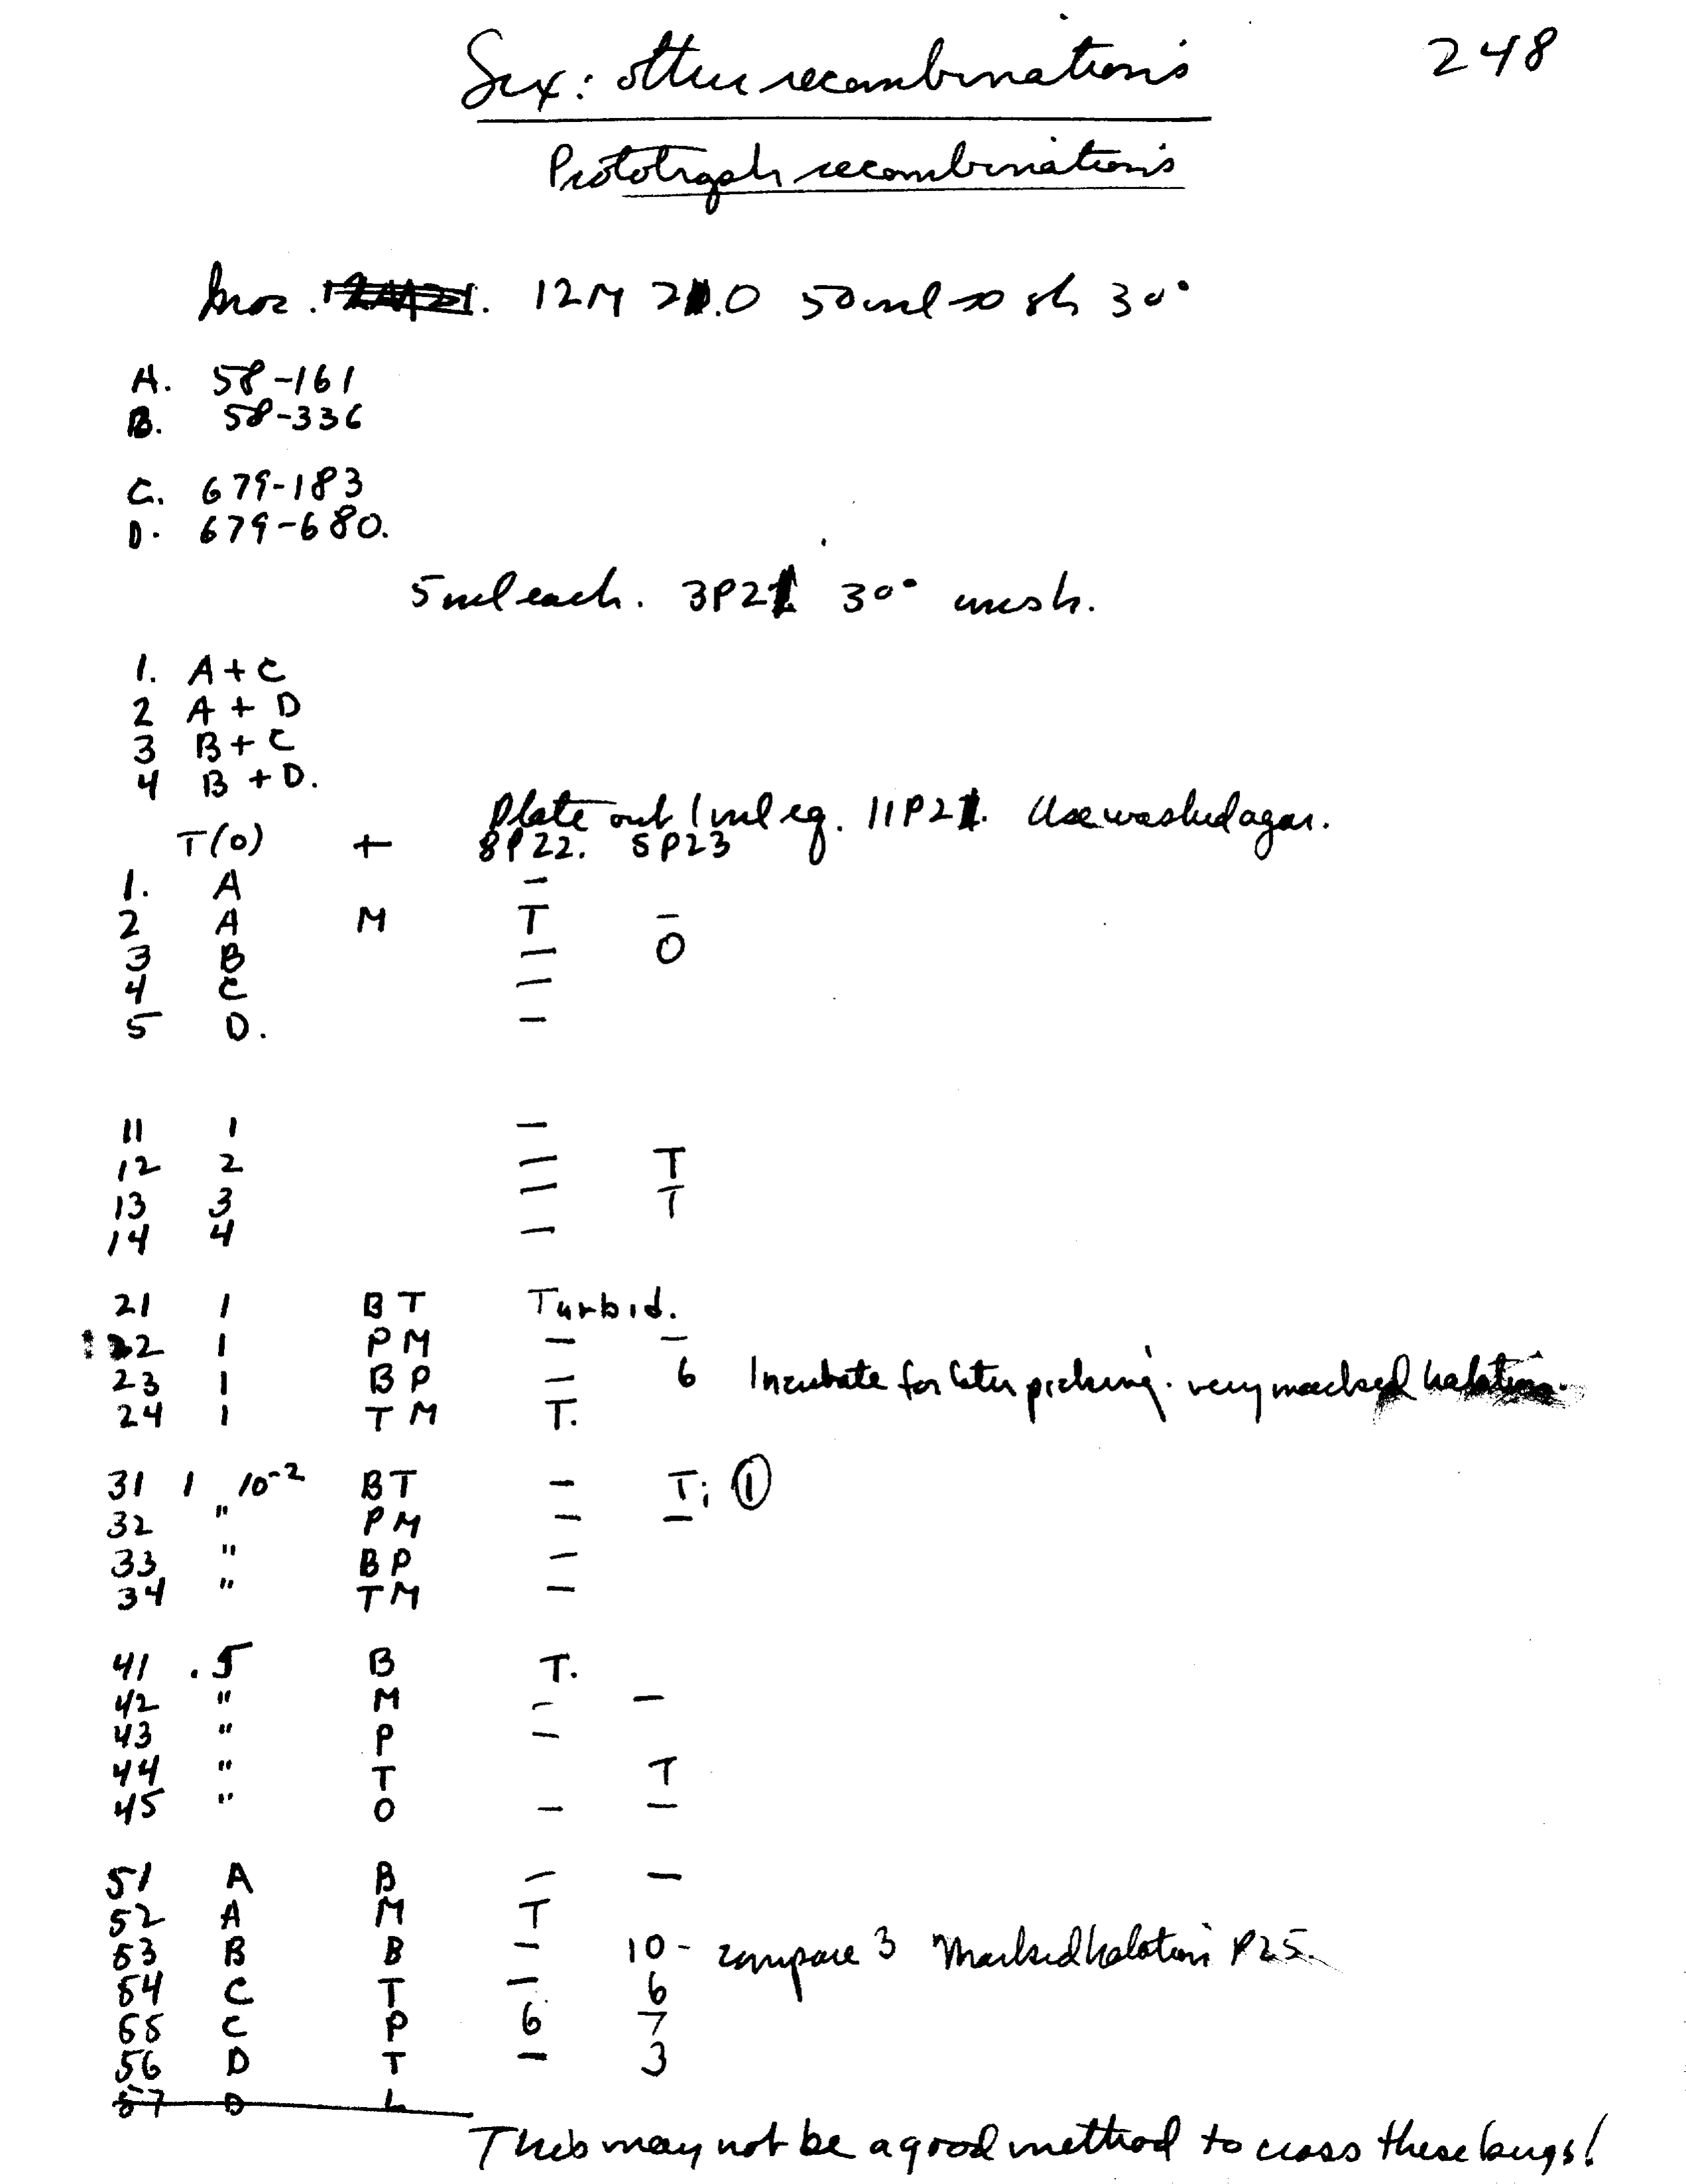 248
Sex: other recombinations
Prototroph recombinations
Inoc. 12M21. 12M 20.0 50ml → sh 30°
A. 58-161
B. 58-336
C. 679-183
D. 679-680.
5 ml each. 3P21 30° unsh.
1. A+C
2 A + D
3 B+C
4 B +D.
Plate out 1 ml eq. 11P21. Use washed agar.
T(0) + 8P22. 5P23
1. A –
2 A M T –
3 B – 0
4 C –
5 D. –
11 1 –
12 2 – T
13 3 – T
14 4 –
21 1 BT Turbid.
22 1 PM – –
23 1 BP – 6 Incubate for later picking. very marked halation.
24 1 TM T.
31 1 10-2 BT – T; ①
32 " PM – –
33 " BP –
34 " TM –
41 .5 B T.
42 " M – –
43 " P –
44 " T T
45 " O – –
51 A B – –
52 A M T
53 B B – 10 - compare 3 Marked halation P25.
54 C T – 6
55 C P 6 7
56 D T – 3
57 D L
This may not be a good method to cross these bugs!